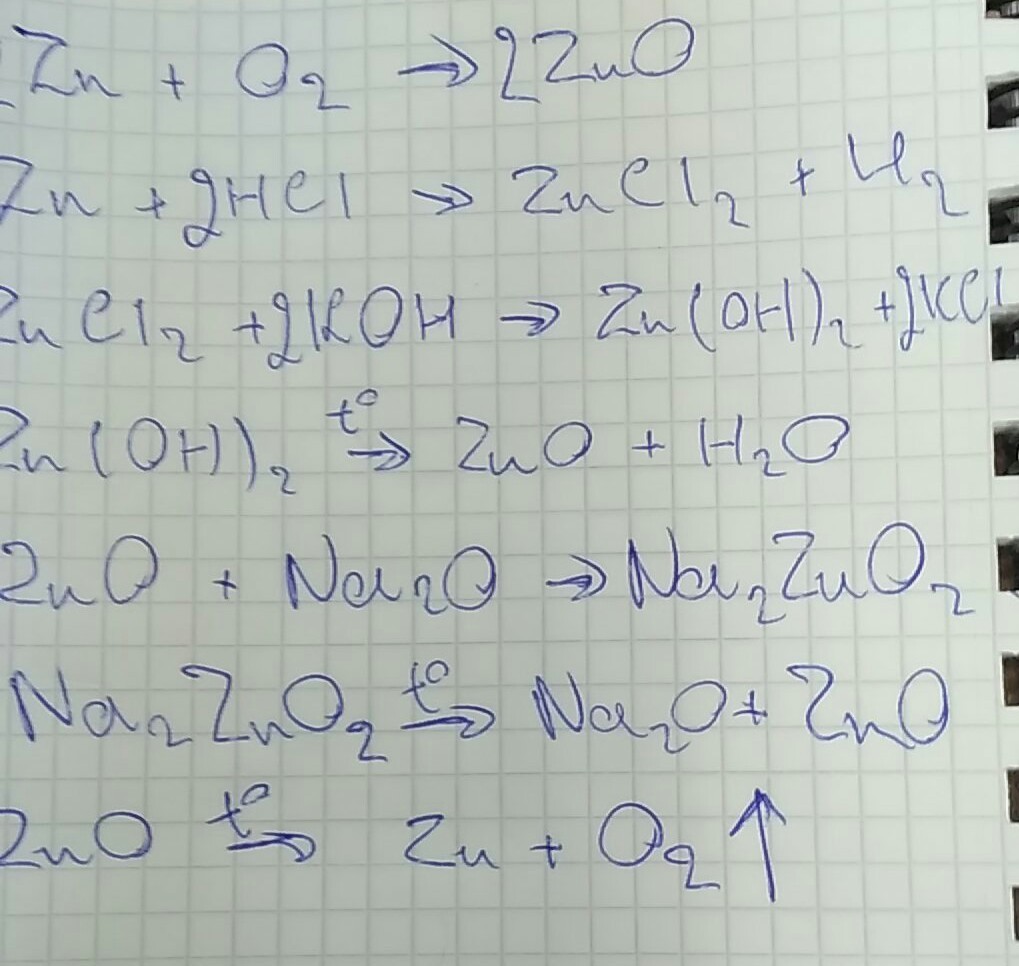 2Zn + O₂ → 2ZnO
Zn + 2HCl → ZnCl₂ + H₂
ZnCl₂ + 2KOH → Zn(OH)₂ + 2KCl
Zn(OH)₂ t°→ ZnO + H₂O
ZnO + Na₂O → Na₂ZnO₂
Na₂ZnO₂ t°→ Na₂O + ZnO
ZnO t°→ Zn + O₂↑